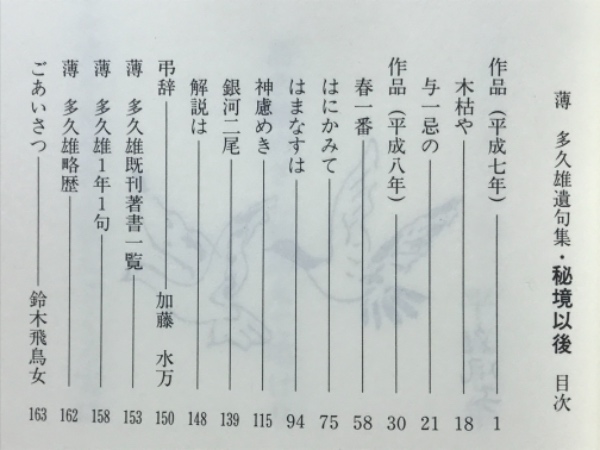 薄 多久雄遺句集・秘境以後 目次
作品（平成七年） 1
木枯や 18
与一忌の 21
作品（平成八年） 30
春一番 58
はにかみて 75
はまなすは 94
神慮めき 115
銀河二尾 139
解説は 148
弔辞 加藤 水万 150
薄 多久雄既刊著書一覧 153
薄 多久雄1年1句 158
薄 多久雄略歴 162
ごあいさつ 鈴木飛鳥女 163